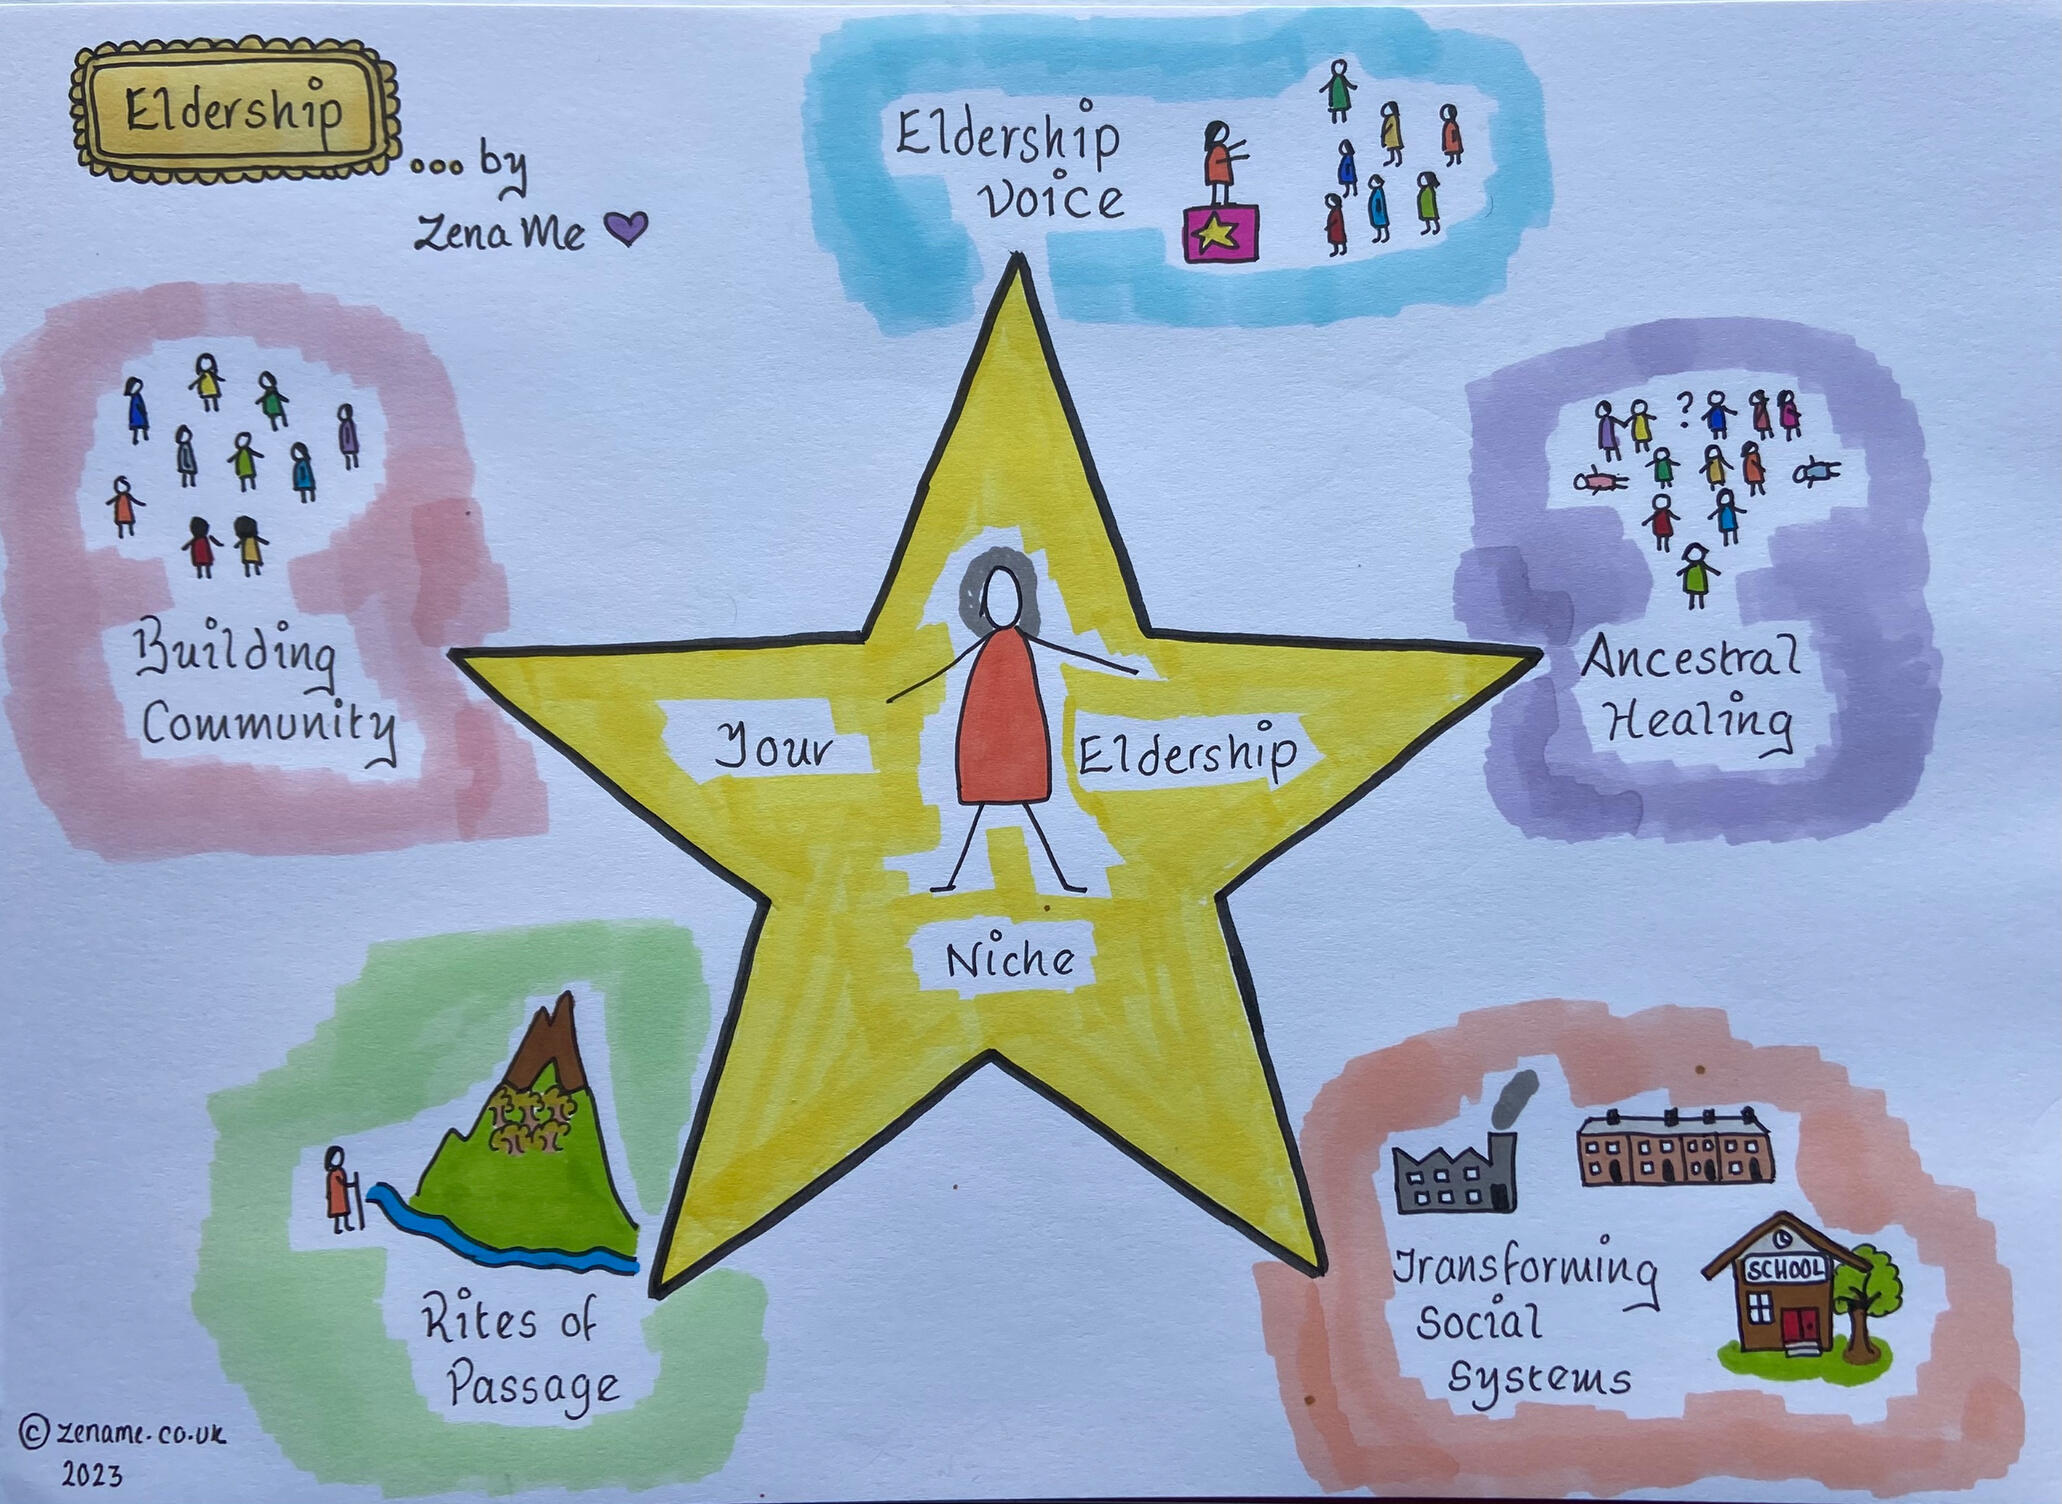 Eldership
... by
Zena Me
Eldership
Voice
Building
Community
?
Ancestral
Healing
Your
Eldership
Niche
Rites of
Passage
Transforming
Social
Systems
SCHOOL
© zename.co.uk
2023